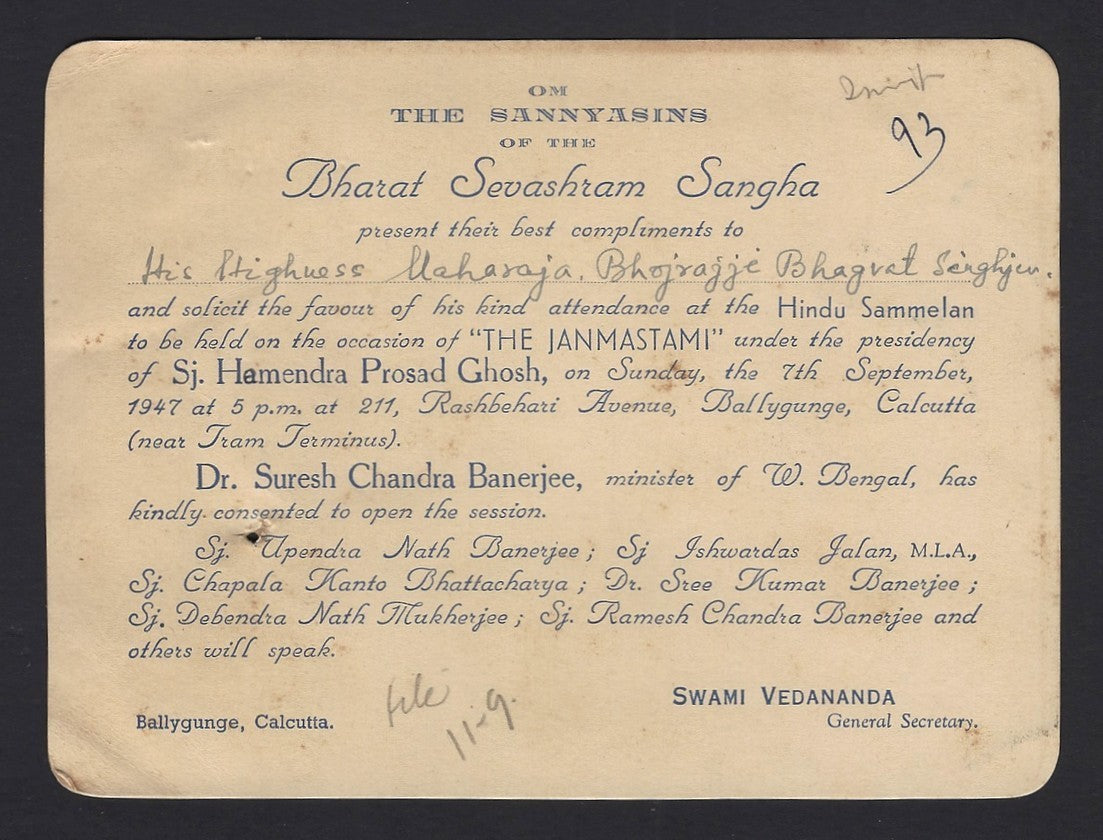 OM
THE SANNYASINS
93
OF THE
Bharat Sevashram Sangha
present their best compliments to
His Highness Maharaja. Bhojrajji Bhagvat
and solicit the favour of his kind attendance at the Hindu Sammelan
to be held on the occasion of "THE JANMASTAMI" under the presidency
of Sj. Hemendra Prosad Ghosh, on Sunday, the 7th September,
1947 at 5 p.m. at 211, Rashbehari Avenue, Ballygunge, Calcutta
(near Tram Terminus).
Dr. Suresh Chandra Banerjee, minister of W. Bengal, has
kindly consented to open the session.
Sj. Upendra Nath Banerjee ; Sj Ishwardas Jalan, M.L.A.,
Sj. Chapala Kanto Bhattacharya ; Dr. Sree Kumar Banerjee ;
Sj. Debendra Nath Mukherjee ; Sj. Ramesh Chandra Banerjee and
others will speak.
file
11-9.
SWAMI VEDANANDA
Ballygunge, Calcutta.
General Secretary.